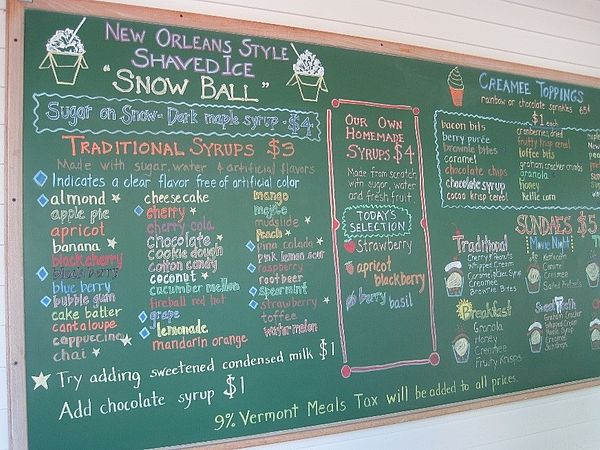 NEW ORLEANS STYLE
SHAVED ICE
"SNOW BALL"
Sugar on Snow- Dark maple syrup - $4
TRADITIONAL SYRUPS $3
Made with sugar, water & artificial flavors
Indicates a clear flavor free of artificial color
almond
apple pie
apricot
banana
black cherry
blackberry
blue berry
bubble gum
cake batter
cantaloupe
cappuccino
chai
cheesecake
cherry
cherry cola
chocolate
cookie dough
cotton candy
coconut
cucumber mellon
fireball red hot
grape
lemonade
mandarin orange
mango
mojito
mudslide
peach
pina colada
pink lemon sour
raspberry
root beer
spearmint
strawberry
toffee
watermelon
Try adding sweetened condensed milk $1
Add chocolate syrup $1
9% Vermont Meals Tax will be added to all prices.
OUR OWN
HOMEMADE
SYRUPS $4
Made from scratch
with sugar, water
and fresh fruit
TODAY'S
SELECTION
Strawberry
apricot
blackberry
berry
basil
CREAMEE TOPPINGS
rainbow or chocolate sprinkles 65¢
$1 each
bacon bits
berry purée
brownie bites
caramel
chocolate chips
chocolate syrup
cocoa krisp cereal
cranberries, dried
fruity krisp cereal
toffee bits
graham cracker crumbs
granola
honey
SUNDAES $5
Traditional
Whipped Cream
Creamee
Brownie Bites
Movie Night
Caramel
Creamee
Salted Pretzels
Breakfast
Granola
Honey
Creamee
Fruity Krisps
Sweet Tooth
Graham Cracker
Whipped Cream
Maple Syrup
Creamee